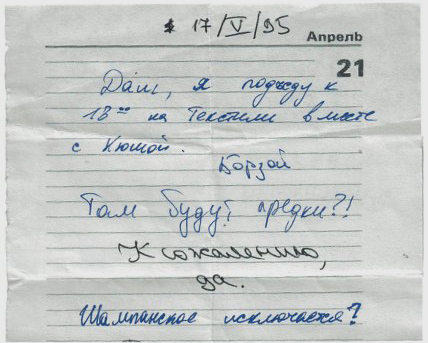 17/V/95
Апрель
21
Дати, я подъеду к
18⁰⁰ на Текстили вместе
с Кюшой.
Борзой
Там будут предки?!
К сожалению,
да.
Шампанское исключается?